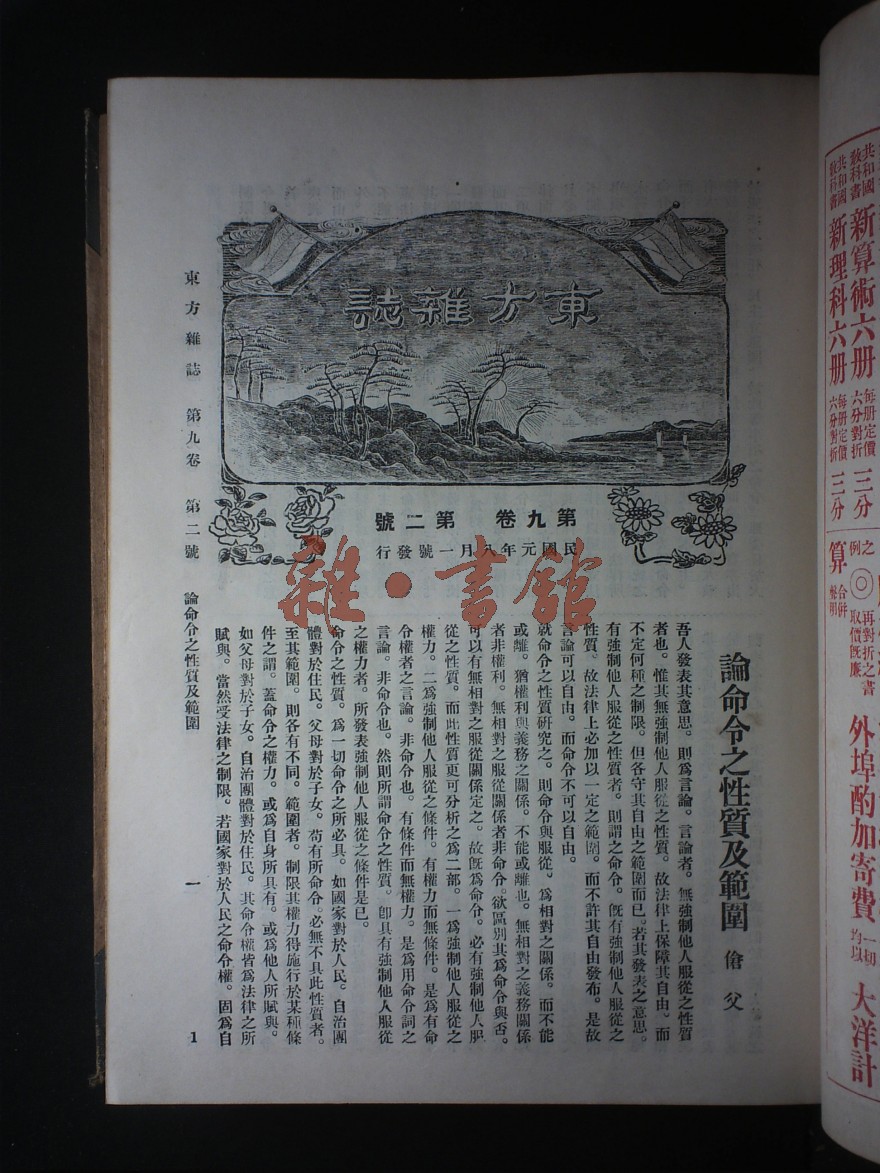 東方雜誌
第九卷 第二號
民國元年八月一號發行
雜·書館
論命令之性質及範圍 傖父
吾人發表其意思。則爲言論。言論者。無強制他人服從之性質
者也。惟其無強制他人服從之性質。故法律上保障其自由。而
不定何種之制限。但各守其自由之範圍而已。若其發表之意思。
有強制他人服從之性質者。則謂之命令。旣有強制他人服從之
性質。故法律上必加以一定之範圍。而不許其自由發布。是故
言論可以自由。而命令不可以自由。
就命令之性質研究之。則命令與服從。爲相對之關係。而不能
或離。猶權利與義務之關係。不能或離也。無相對之義務關係
者非權利。無相對之服從關係者非命令。欲區別其爲命令與否。
可以有無相對之服從關係定之。故旣爲命令。必有強制他人服
從之性質。而此性質更可分析之爲二部。一爲強制他人服從之
權力。二爲強制他人服從之條件。有權力而無條件。是爲有命
令權者之言論。非命令也。有條件而無權力。是爲用命令詞之
言論。非命令也。然則所謂命令之性質。卽具有強制他人服從
之權力者。所發表強制他人服從之條件是已。
命令之性質。爲一切命令之所必具。如國家對於人民。自治團
體對於住民。父母對於子女。苟有所命令。必無不具此性質者。
至其範圍。則各有不同。範圍者。制限其權力得施行於某種條
件之謂。蓋命令之權力。或爲自身所具有。或爲他人所賦與。
如父母對於子女。自治團體對於住民。其命令權皆爲法律之所
賦與。當然受法律之制限。若國家對於人民之命令權。固爲自
東方雜誌 第九卷 第二號 論命令之性質及範圍 一
1
共和國教科書 新算術六册 每册定價六分對折 三分
共和國教科書 新理科六册 每册定價六分對折 三分
之例 ◎ 再對折之書取價旣廉 外埠酌加寄費 一切均以 大洋計
算 合併聲明